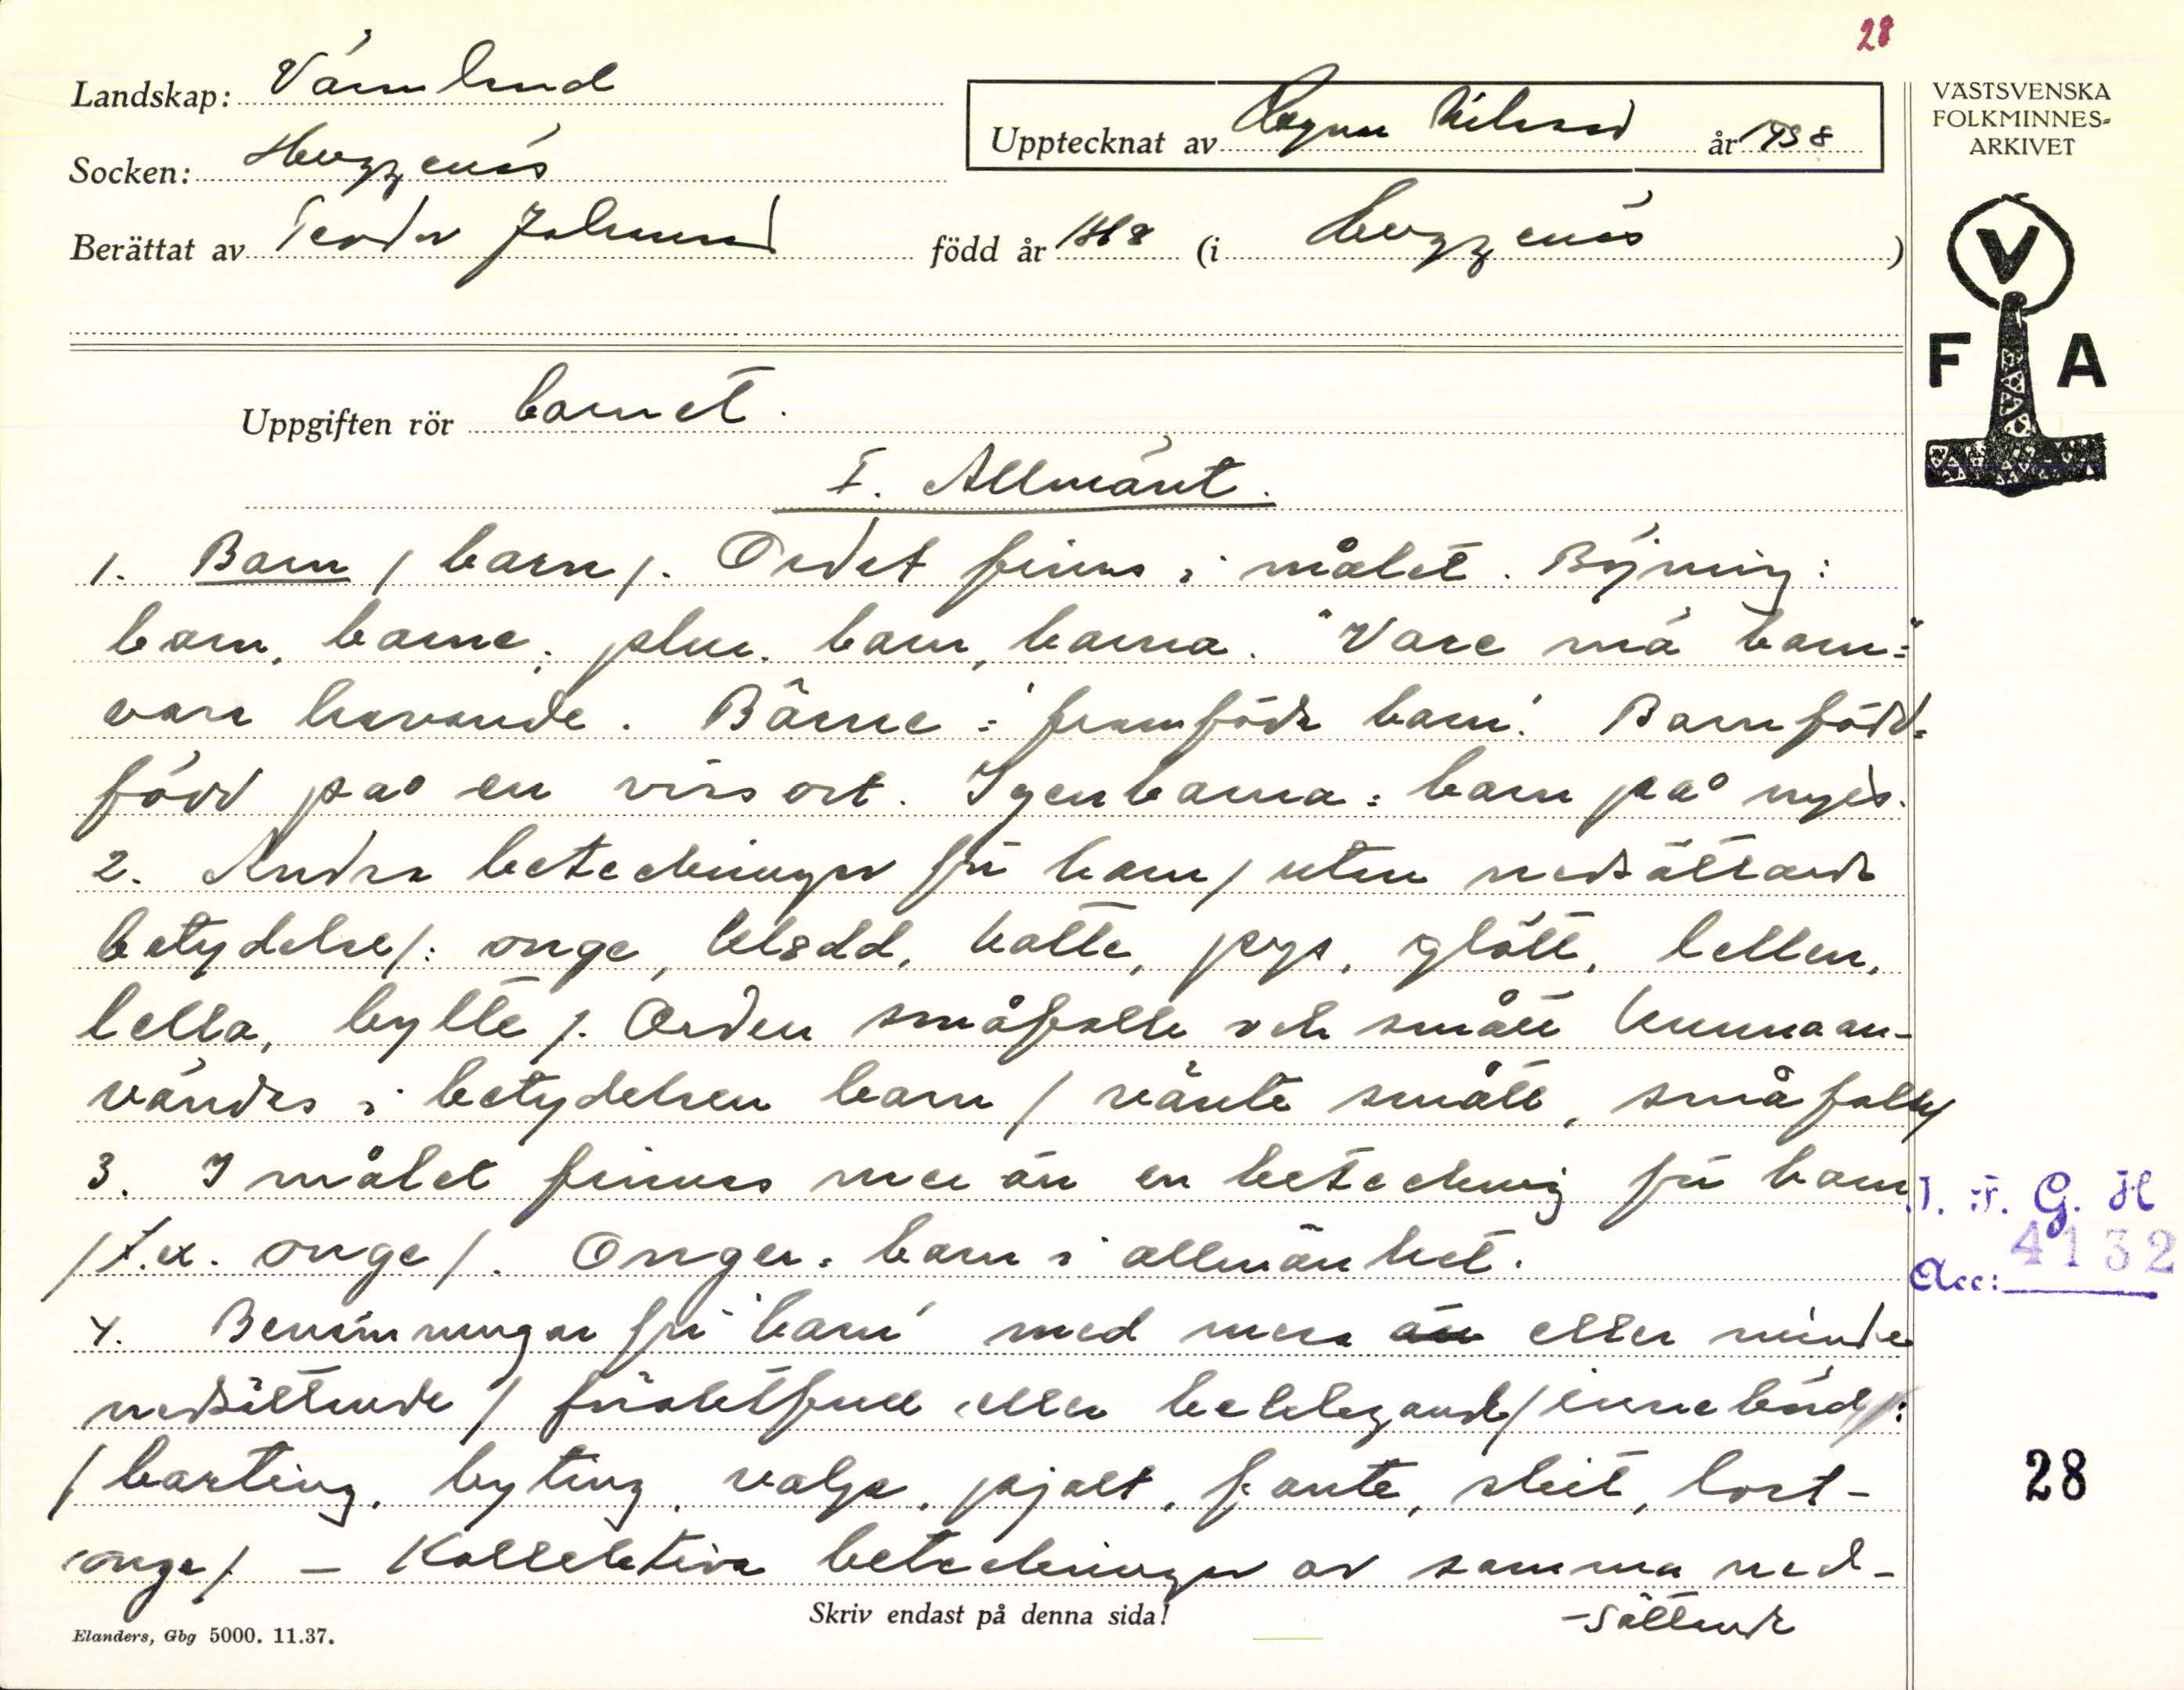 28
Landskap: Värmland
Upptecknat av Ragnar Nilsson år 1938
VÄSTSVENSKA
FOLKMINNES-
ARKIVET
Socken: Huggenäs
Berättat av Teodor Johansson född år 1868 (i Huggenäs)
V
F A
Uppgiften rör barnet.
I. Allmänt.
1. Barn / barn /. Ordet finns i målet. Böjning:
barn, barne; plur. barn, barna. "Vare mä barn"=
vara havande. Bärne = 'framföda barn'. Barnfödd=
född på en viss ort. Igenbarna = barn på nytt.
2. Andra beteckningar för barn / utan nedsättande
betydelse /: onge, , batte, pys, glött, lellen,
lella, bytte /. Orden småfolk och smått kunna an-
vändas i betydelsen barn / vänte smått, småfolk/
3. I målet finnes mer än en beteckning för barn
/ t.ex. onge /. Onger = barn i allmänhet.
J. F. G. H
Acc: 4132
4. Benämningar för 'barn' med mera eller mindre
nedsättande / föraktfull eller beklagande / innebörd /:
/ barting, byting, valp, pjalt, fante, skit, lort-
onge /. – Kollektiva beteckningar av samma ned-
-sättande
28
Skriv endast på denna sida!
Elanders, Gbg 5000. 11.37.